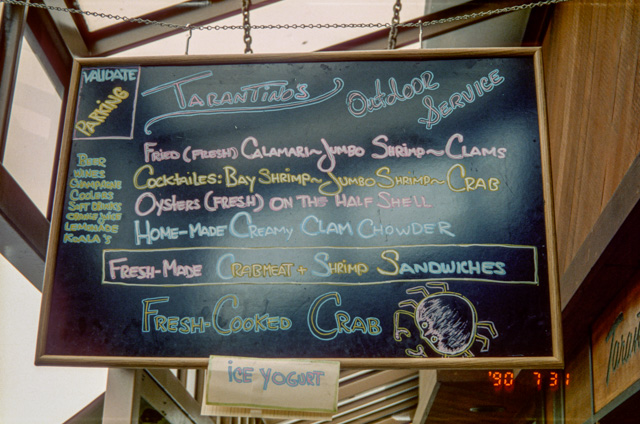 VALIDATE
PARKING
TARANTINO'S
OUTDOOR
SERVICE
FRIED (FRESH) CALAMARI~JUMBO SHRIMP~CLAMS
COCKTAILES: BAY SHRIMP~JUMBO SHRIMP~CRAB
OYSTERS (FRESH) ON THE HALF SHELL
HOME-MADE CREAMY CLAM CHOWDER
FRESH-MADE CRABMEAT + SHRIMP SANDWICHES
FRESH-COOKED CRAB
BEER
WINES
CHAMPAGNE
COOLERS
SOFT DRINKS
ORANGE JUICE
LEMONADE
KOALA'S
ICE YOGURT
'90 7 31